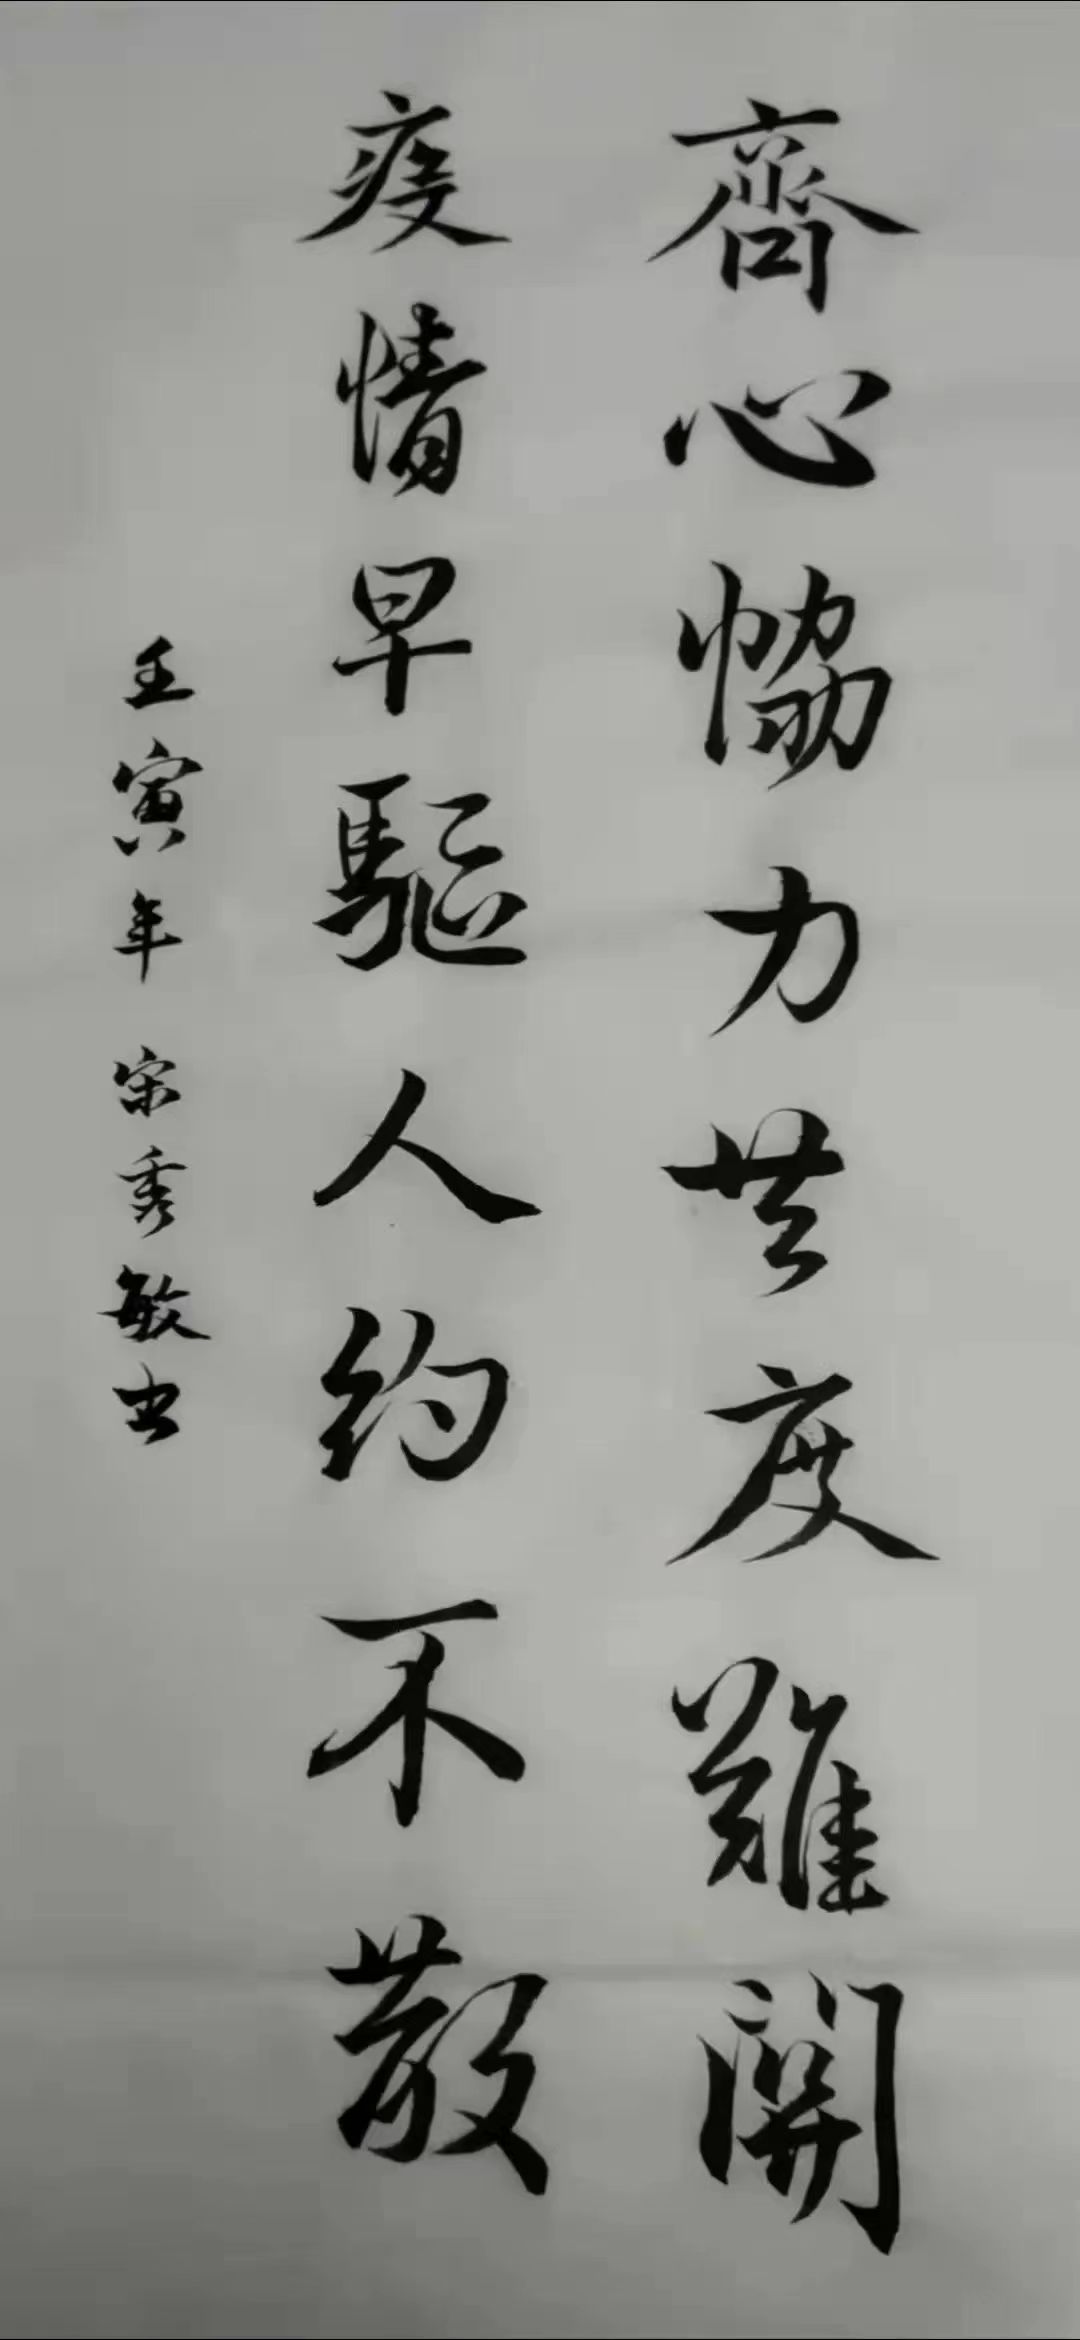 齊心恊力共度難関
疫情早驅人約不散
壬寅年 宋秀敏书